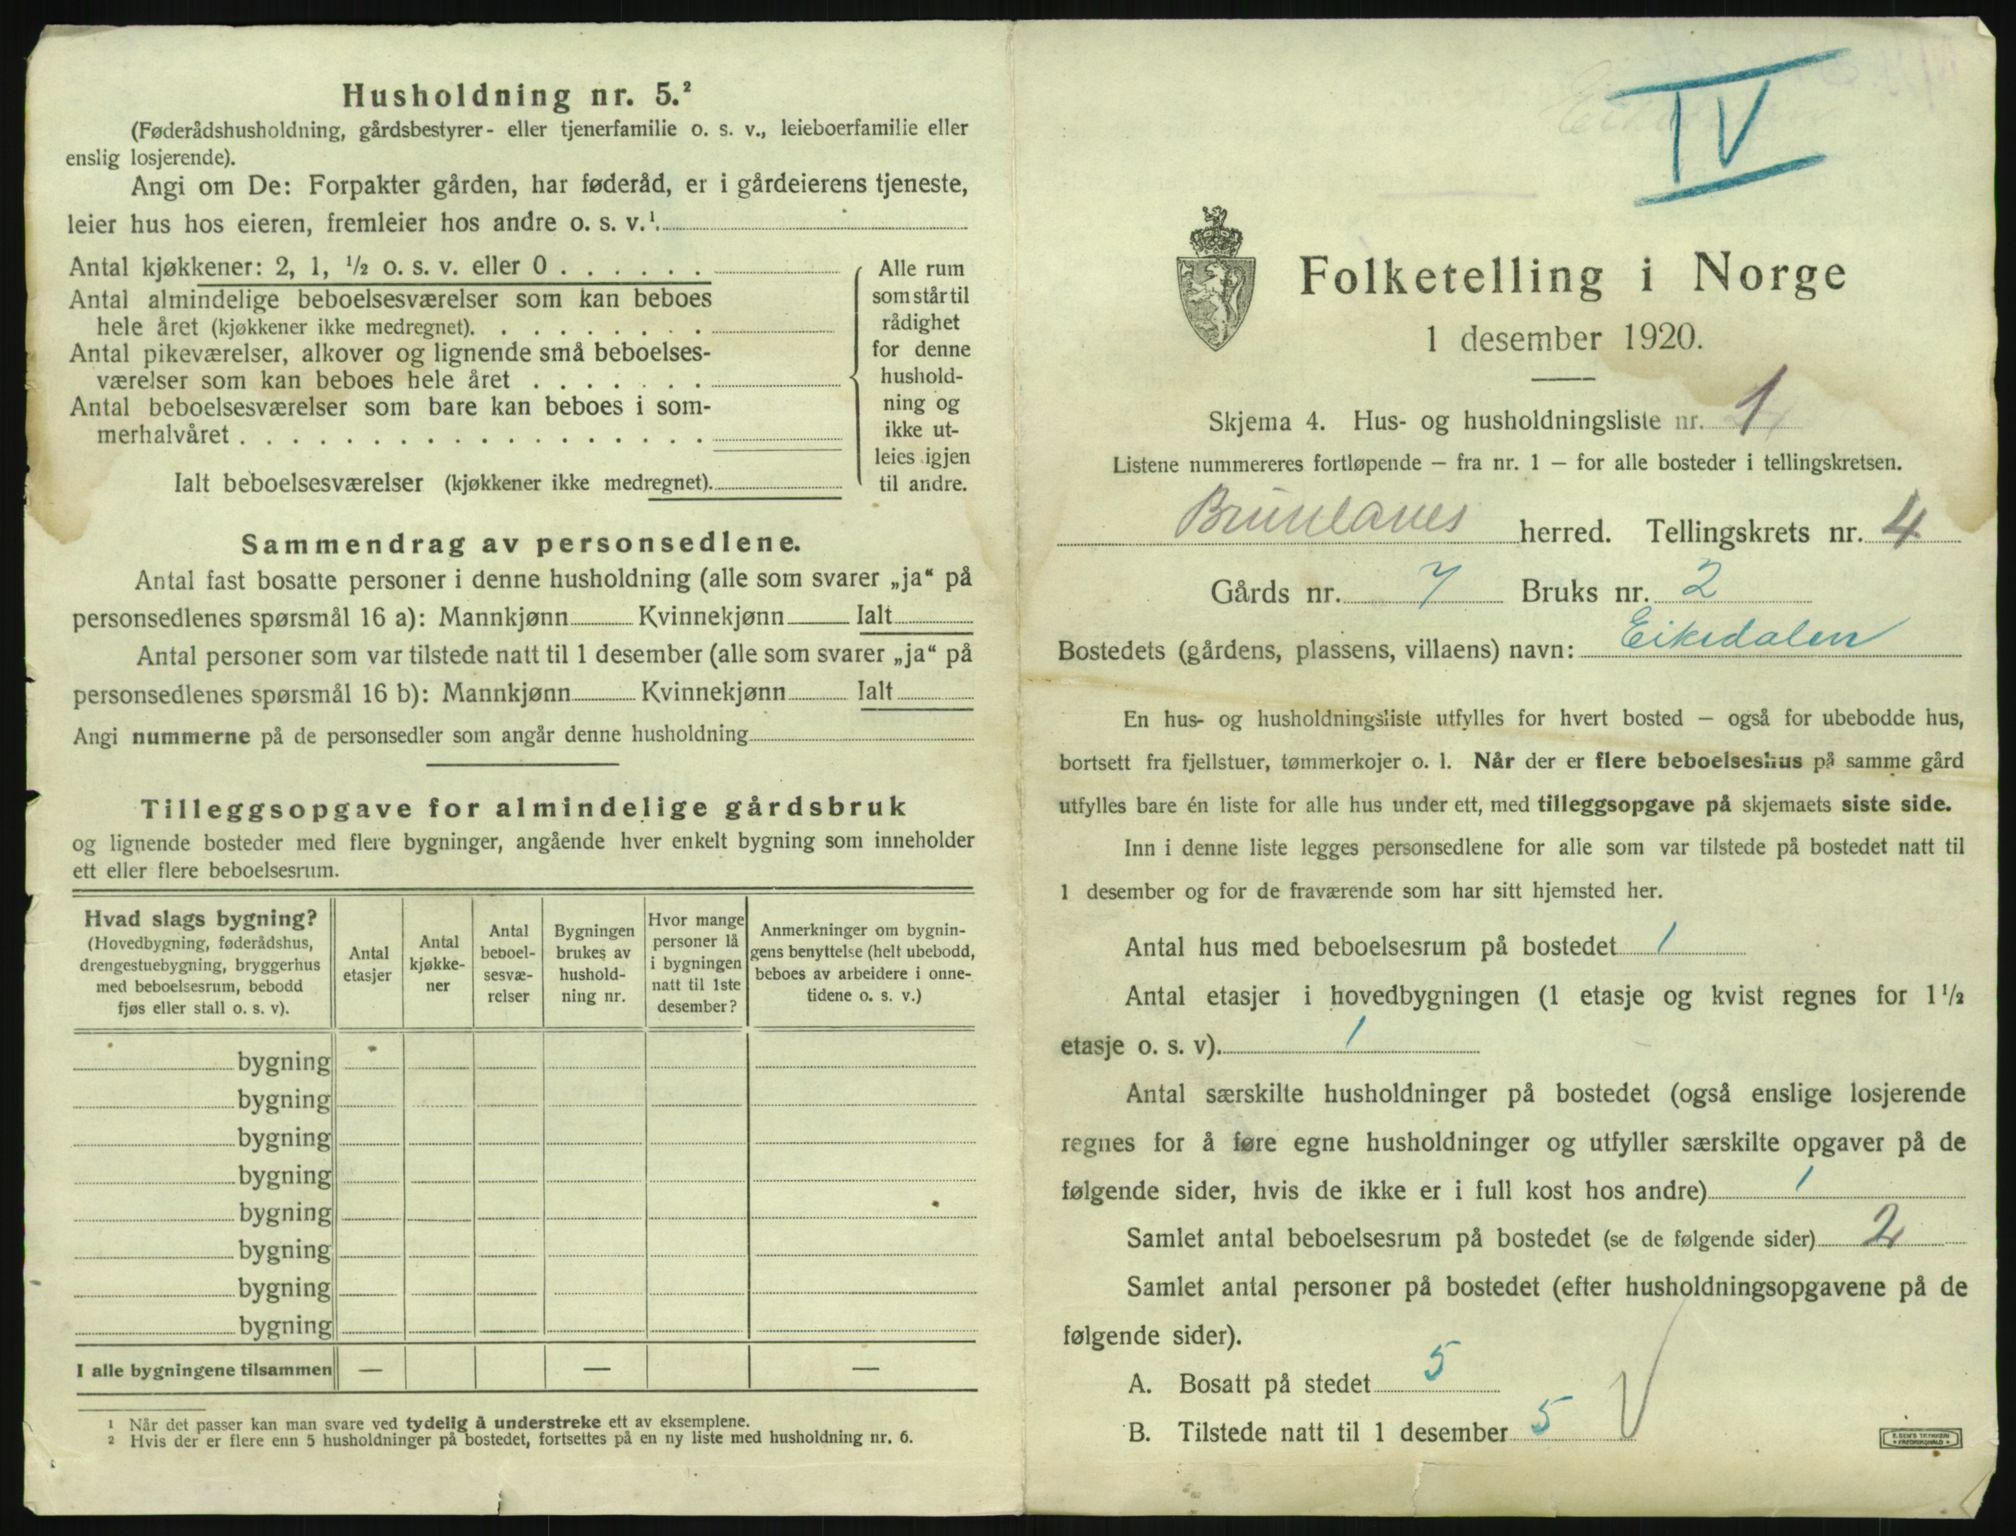 Husholdning nr. 5.²
(Føderådshusholdning, gårdsbestyrer- eller tjenerfamilie o. s. v., leieboerfamilie eller
enslig losjerende).
Angi om De: Forpakter gården, har føderåd, er i gårdeierens tjeneste,
leier hus hos eieren, fremleier hos andre o. s. v.¹.
Antal kjøkkener: 2, 1, ½ o. s. v. eller 0 . . . . . .
Antal almindelige beboelsesværelser som kan beboes
hele året (kjøkkener ikke medregnet). . . . . . . . .
Antal pikeværelser, alkover og lignende små beboelses-
værelser som kan beboes hele året . . . . . . .
Antal beboelsesværelser som bare kan beboes i som-
merhalvåret . . . . . . . . . . . . . . . . . .
Ialt beboelsesværelser (kjøkkener ikke medregnet).
Alle rum
som står til
rådighet
for denne
hushold-
ning og
ikke ut-
leies igjen
til andre.
Sammendrag av personsedlene.
Antal fast bosatte personer i denne husholdning (alle som svarer „ja“ på
personsedlenes spørsmål 16 a): Mannkjønn Kvinnekjønn Ialt
Antal personer som var tilstede natt til 1 desember (alle som svarer „ja“ på
personsedlenes spørsmål 16 b): Mannkjønn Kvinnekjønn Ialt
Angi nummerne på de personsedler som angår denne husholdning
Tilleggsopgave for almindelige gårdsbruk
og lignende bosteder med flere bygninger, angående hver enkelt bygning som inneholder
ett eller flere beboelsesrum.
Hvad slags bygning?
(Hovedbygning, føderådshus,
drengestuebygning, bryggerhus
med beboelsesrum, bebodd
fjøs eller stall o. s. v).
Antal
etasjer
Antal
kjøkke-
ner
Antal
beboel-
sesvæ-
relser
Bygningen
brukes av
hushold-
ning nr.
Hvor mange
personer lå
i bygningen
natt til 1ste
desember?
Anmerkninger om bygnin-
gens benyttelse (helt ubebodd,
beboes av arbeidere i onne-
tidene o. s. v.)
bygning
bygning
bygning
bygning
bygning
bygning
bygning
bygning
I alle bygningene tilsammen — — —
¹ Når det passer kan man svare ved tydelig å understreke ett av eksemplene.
² Hvis der er flere enn 5 husholdninger på bostedet, fortsettes på en ny liste med husholdning nr. 6.
IV
Folketelling i Norge
1 desember 1920.
Skjema 4. Hus- og husholdningsliste nr. 1
Listene nummereres fortløpende – fra nr. 1 – for alle bosteder i tellingskretsen.
Brunlanes herred. Tellingskrets nr. 4.
Gårds nr. 7 Bruks nr. 2
Bostedets (gårdens, plassens, villaens) navn: Eikedalen
En hus- og husholdningsliste utfylles for hvert bosted – også for ubebodde hus,
bortsett fra fjellstuer, tømmerkojer o. l. Når der er flere beboelseshus på samme gård
utfylles bare én liste for alle hus under ett, med tilleggsopgave på skjemaets siste side.
Inn i denne liste legges personsedlene for alle som var tilstede på bostedet natt til
1 desember og for de fraværende som har sitt hjemsted her.
Antal hus med beboelsesrum på bostedet 1
Antal etasjer i hovedbygningen (1 etasje og kvist regnes for 1½
etasje o. s. v). 1
Antal særskilte husholdninger på bostedet (også enslige losjerende
regnes for å føre egne husholdninger og utfyller særskilte opgaver på de
følgende sider, hvis de ikke er i full kost hos andre) 1
Samlet antal beboelsesrum på bostedet (se de følgende sider) 2
Samlet antal personer på bostedet (efter husholdningsopgavene på de
følgende sider).
A. Bosatt på stedet 5
B. Tilstede natt til 1 desember 5